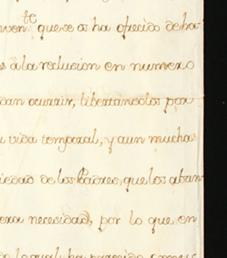 tc
que se os ha ofrecido de ha
à la reducion en numero
dan ocurrir, libertandolos por
vida temporal, y aun mucha
iedad de los Padres, que los aban
necesidad, por lo que en